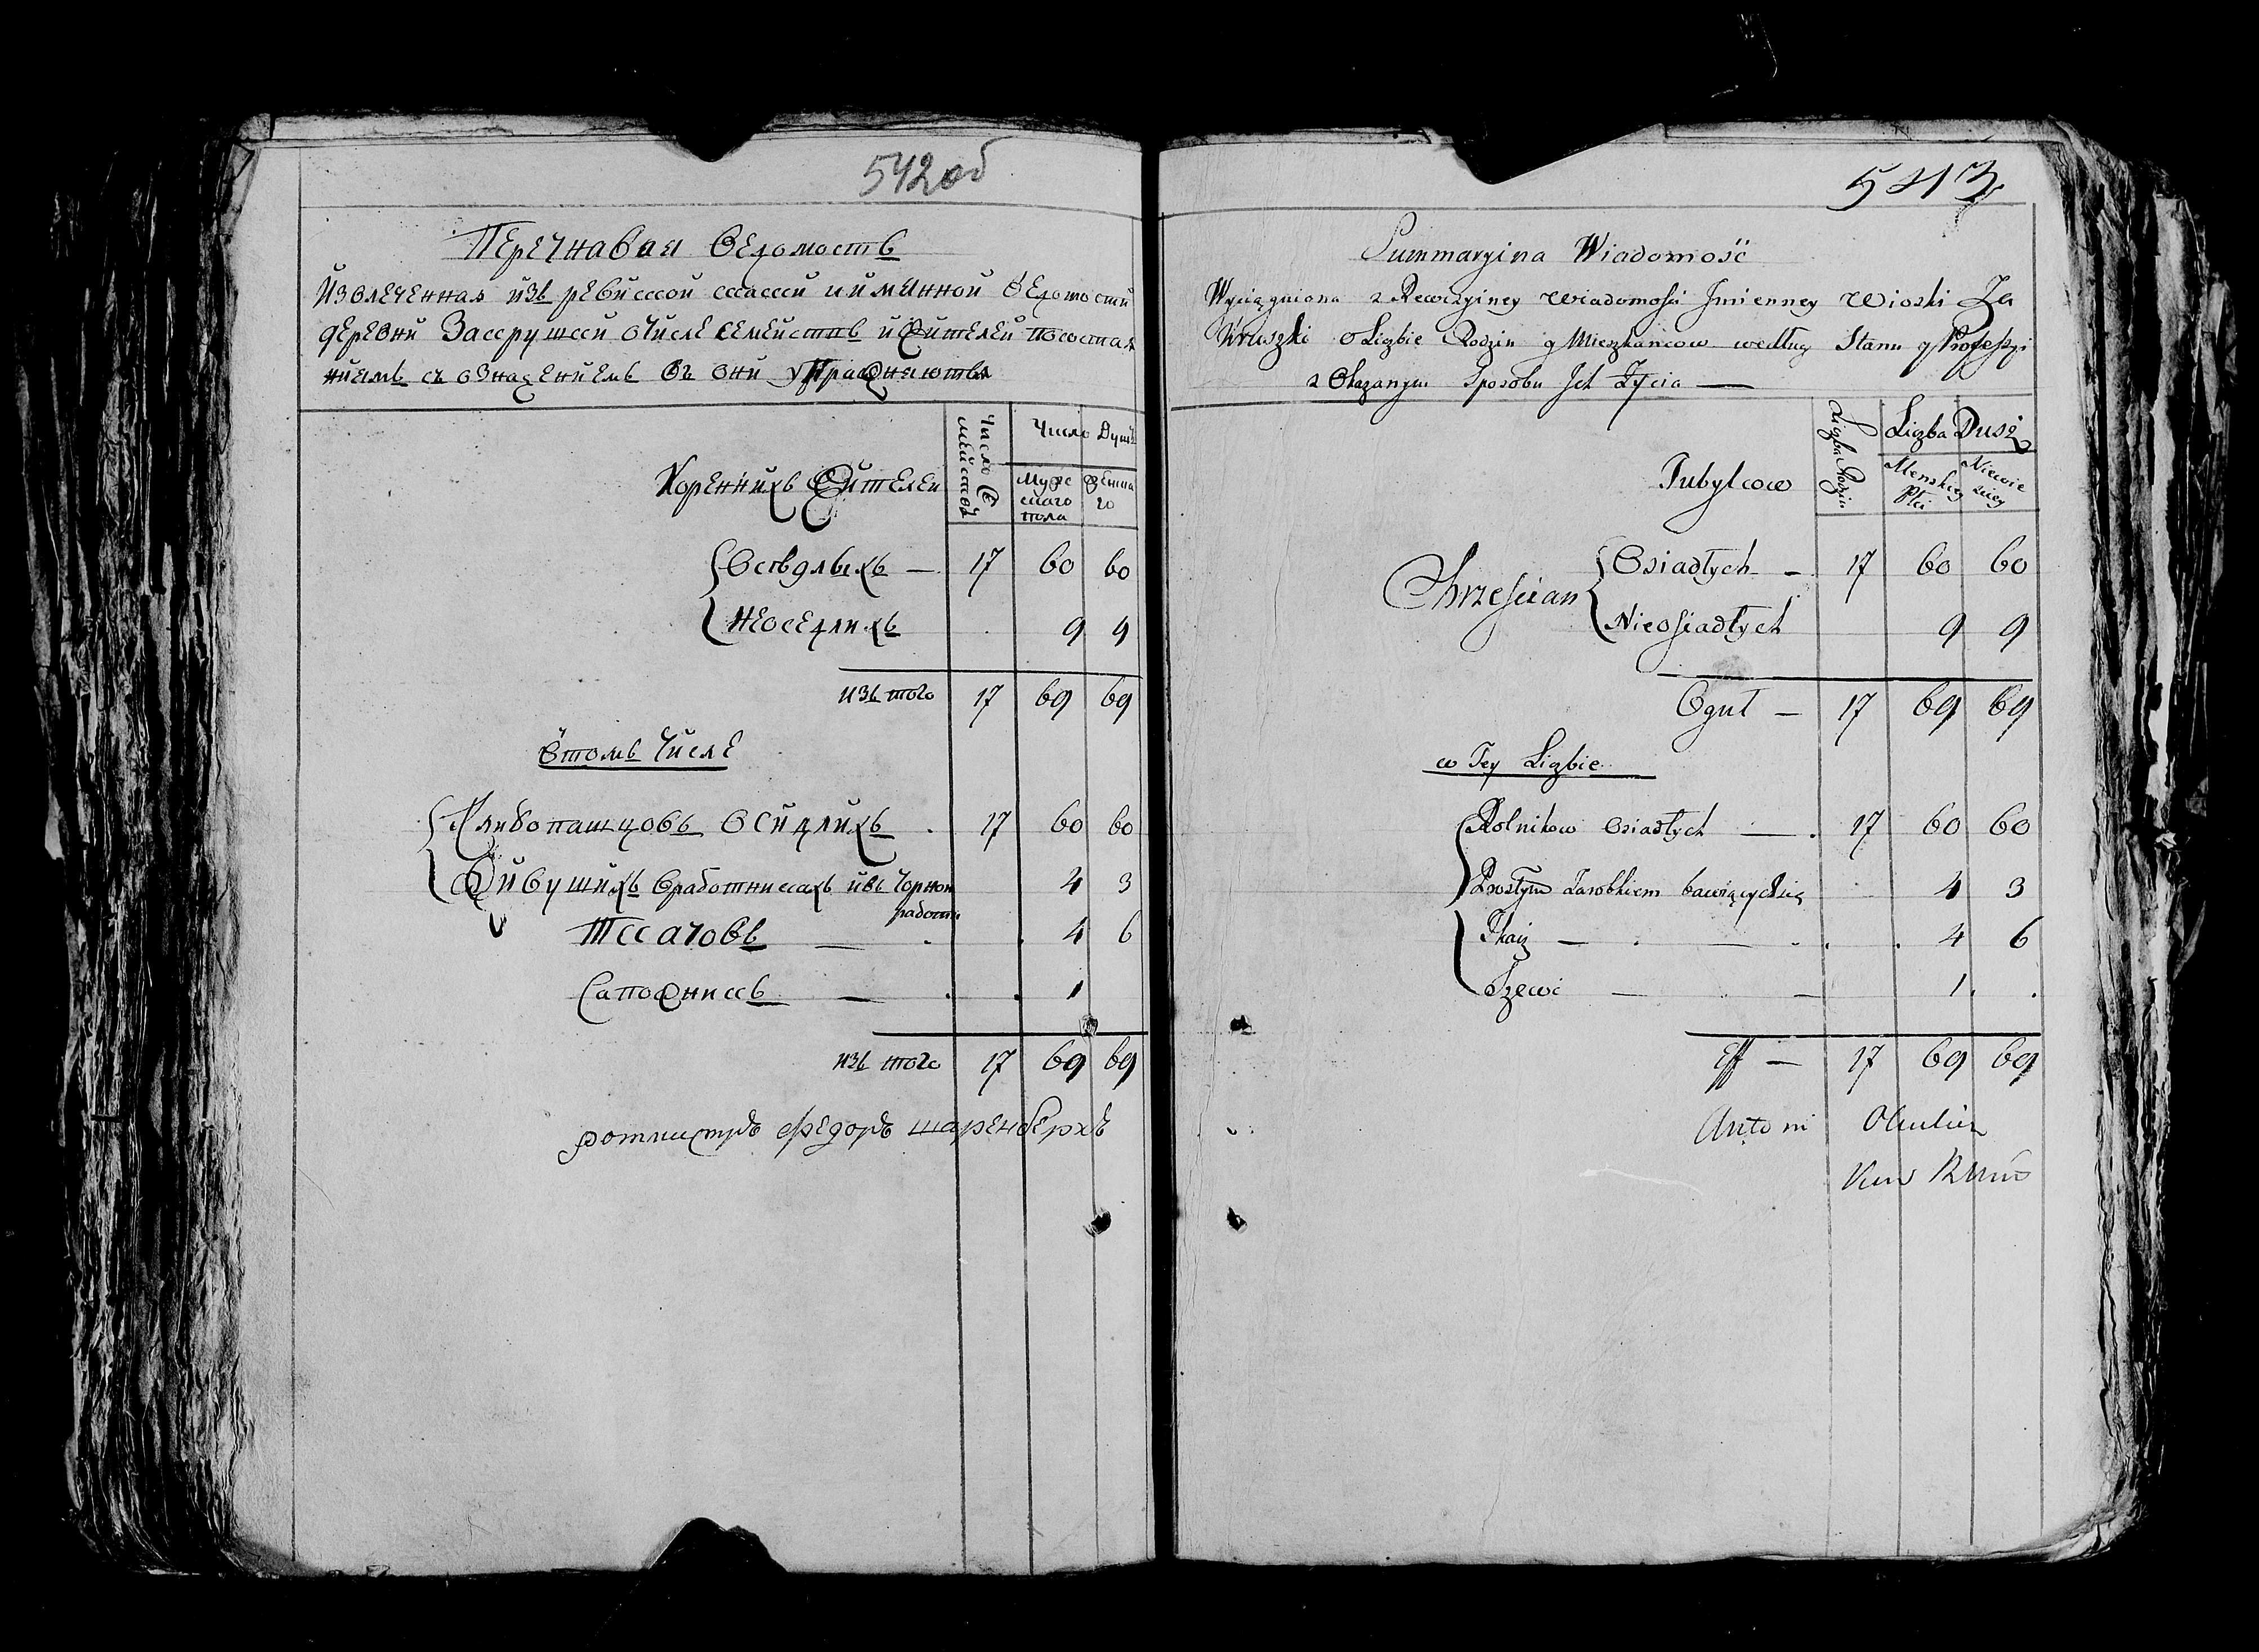 542 об
Перечнавая ведомость
Извлеченная изъ ревиской скаски иимянной ведомости
деревни Закрушки очисле семействъ ижителей посостоя
ниемъ съ означениемъ въ
Число Се мействъ
Число Душъ
Коренныхъ Жителей
Мужескаго пола
женска го
Осѣдлыхъ — 17 60 60
Неоседлихъ 9 9
изъ того 17 69 69
втомъ числе
Хлибопашцовъ осидлихъ . 17 60 60
Живущихъ вработникахъ ивъ Чорной работи 4 3
Ткачовъ — 4 6
Сапожникъ — 1
изъ того 17 69 69
ротмистръ федоръ шаренберхъ
543
Summaryina Wiadomość
Wyciągniona z Rewizyiney wiadomości Jmienney wioski Za
kruszki o Liczbie Rodzin y Mieszkancow według Stanu y Profeszyi
z Okazanym Sposobu Jch Życia —
Liczba Rodzin
Liczba Dusz
Tubylcow
Męnskiey Płci
Niewie sciey
Chrzescian
Osiadłych — 17 60 60
Nieosiadłych 9 9
Oguł — 17 69 69
w Tey Liczbie
Rolnikow Osiadłych — 17 60 60
Prostym Zarobkiem bawiących się 4 3
Tkacz — 4 6
Szewc — 1 .
Eff — 17 69 69
Antoni